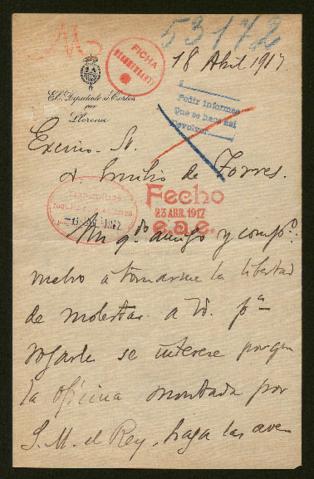 53172
FICHA
18 Abril 1917
El Diputado á Cortes
por
Llerena
Pedir informes
Que se hace así
Devolver
Excmo. Sr.
D Emilio de Torres.
Fecho
23 ABR. 1917
e.a.e.
Mi qdo amigo y compº:
vuelvo a tomarme la libertad
de molestar a Vd. pª
rogarle se interese porque
la oficina montada por
S. M. el Rey, haga las ave